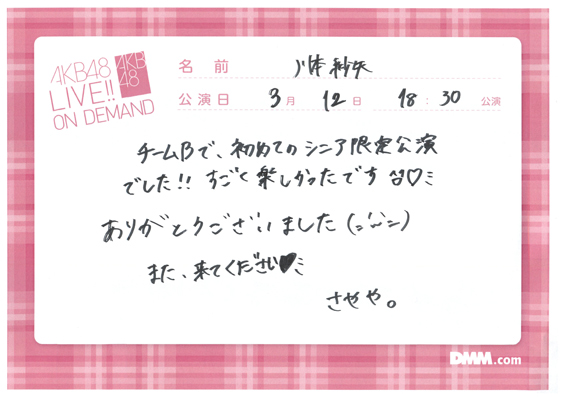 AKB48
LIVE!!
ON DEMAND
AKB
48
名前 川本紗矢
公演日 3月 12日 18:30 公演
チームBで、初めてのシニア限定公演
でした!! すごく楽しかったです♡
ありがとうございました
また、来てください♥
さやや。
DMM.com